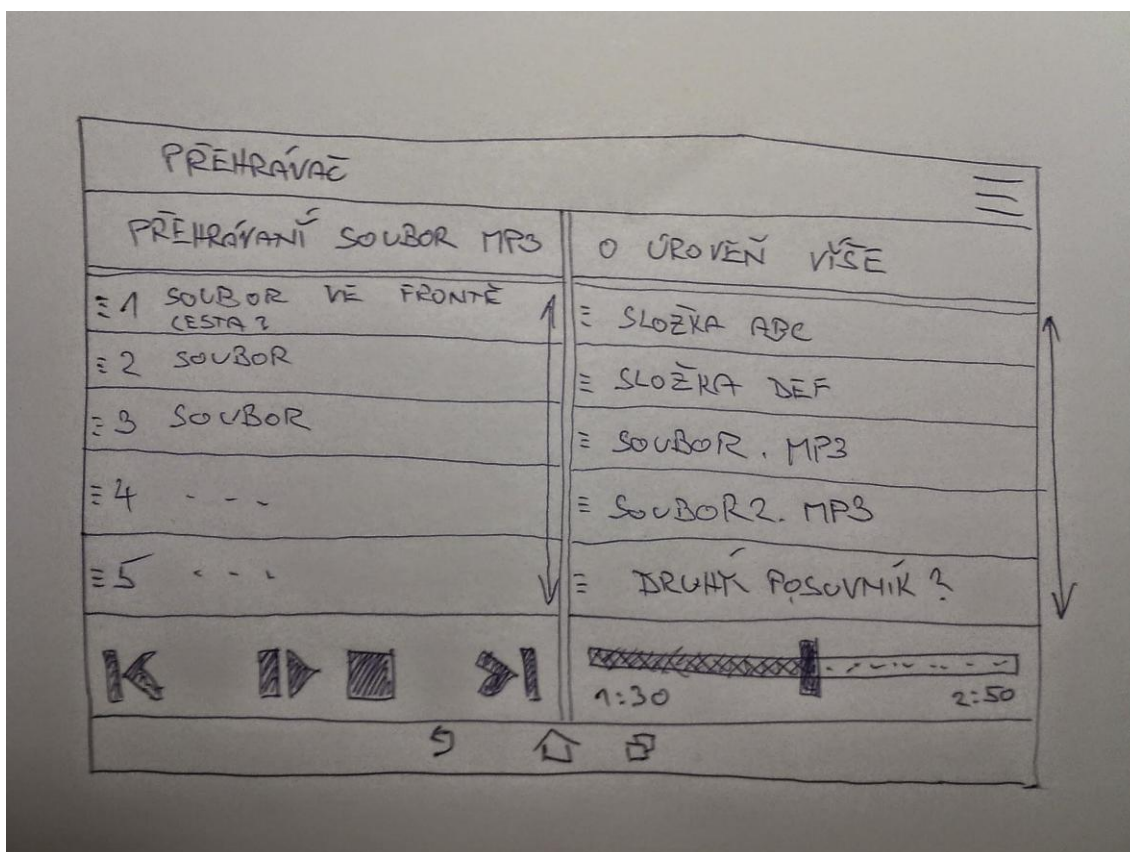 PŘEHRÁVAČ
PŘEHRÁVANÍ SOUBOR MP3
1 SOUBOR VE FRONTĚ
CESTA?
2 SOUBOR
3 SOUBOR
4 - - -
5 - - -
O ÚROVEŇ VÍŠE
SLOŽKA ABC
SLOŽKA DEF
SOUBOR.MP3
SOUBOR2.MP3
DRUHÝ POSUVNÍK?
1:30
2:50